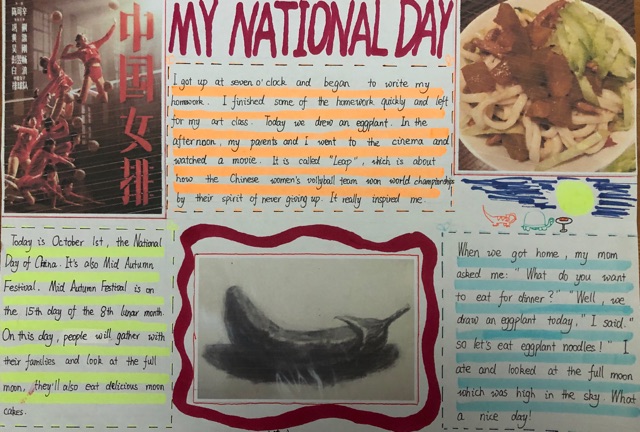 中国女排
MY NATIONAL DAY
I got up at seven o'clock and began to write my
homework. I finished some of the homework quickly and left
for my art class. Today we drew an eggplant. In the
afternoon, my parents and I went to the cinema and
watched a movie. It is called "Leap", which is about
how the Chinese women's vollyball team won world championship
by their spirit of never giving up. It really inspired me.
Today is October 1st, the National
Day of China. It's also Mid Autumn
Festival. Mid Autumn Festival is on
the 15th day of the 8th lunar month.
On this day, people will gather with
their families and look at the full
moon, they'll also eat delicious moon
cakes.
When we got home, my mom
asked me: "What do you want
to eat for dinner?" "Well, we
draw an eggplant today," I said."
so let's eat eggplant noodles!" I
ate and looked at the full moon
which was high in the sky. What
a nice day!